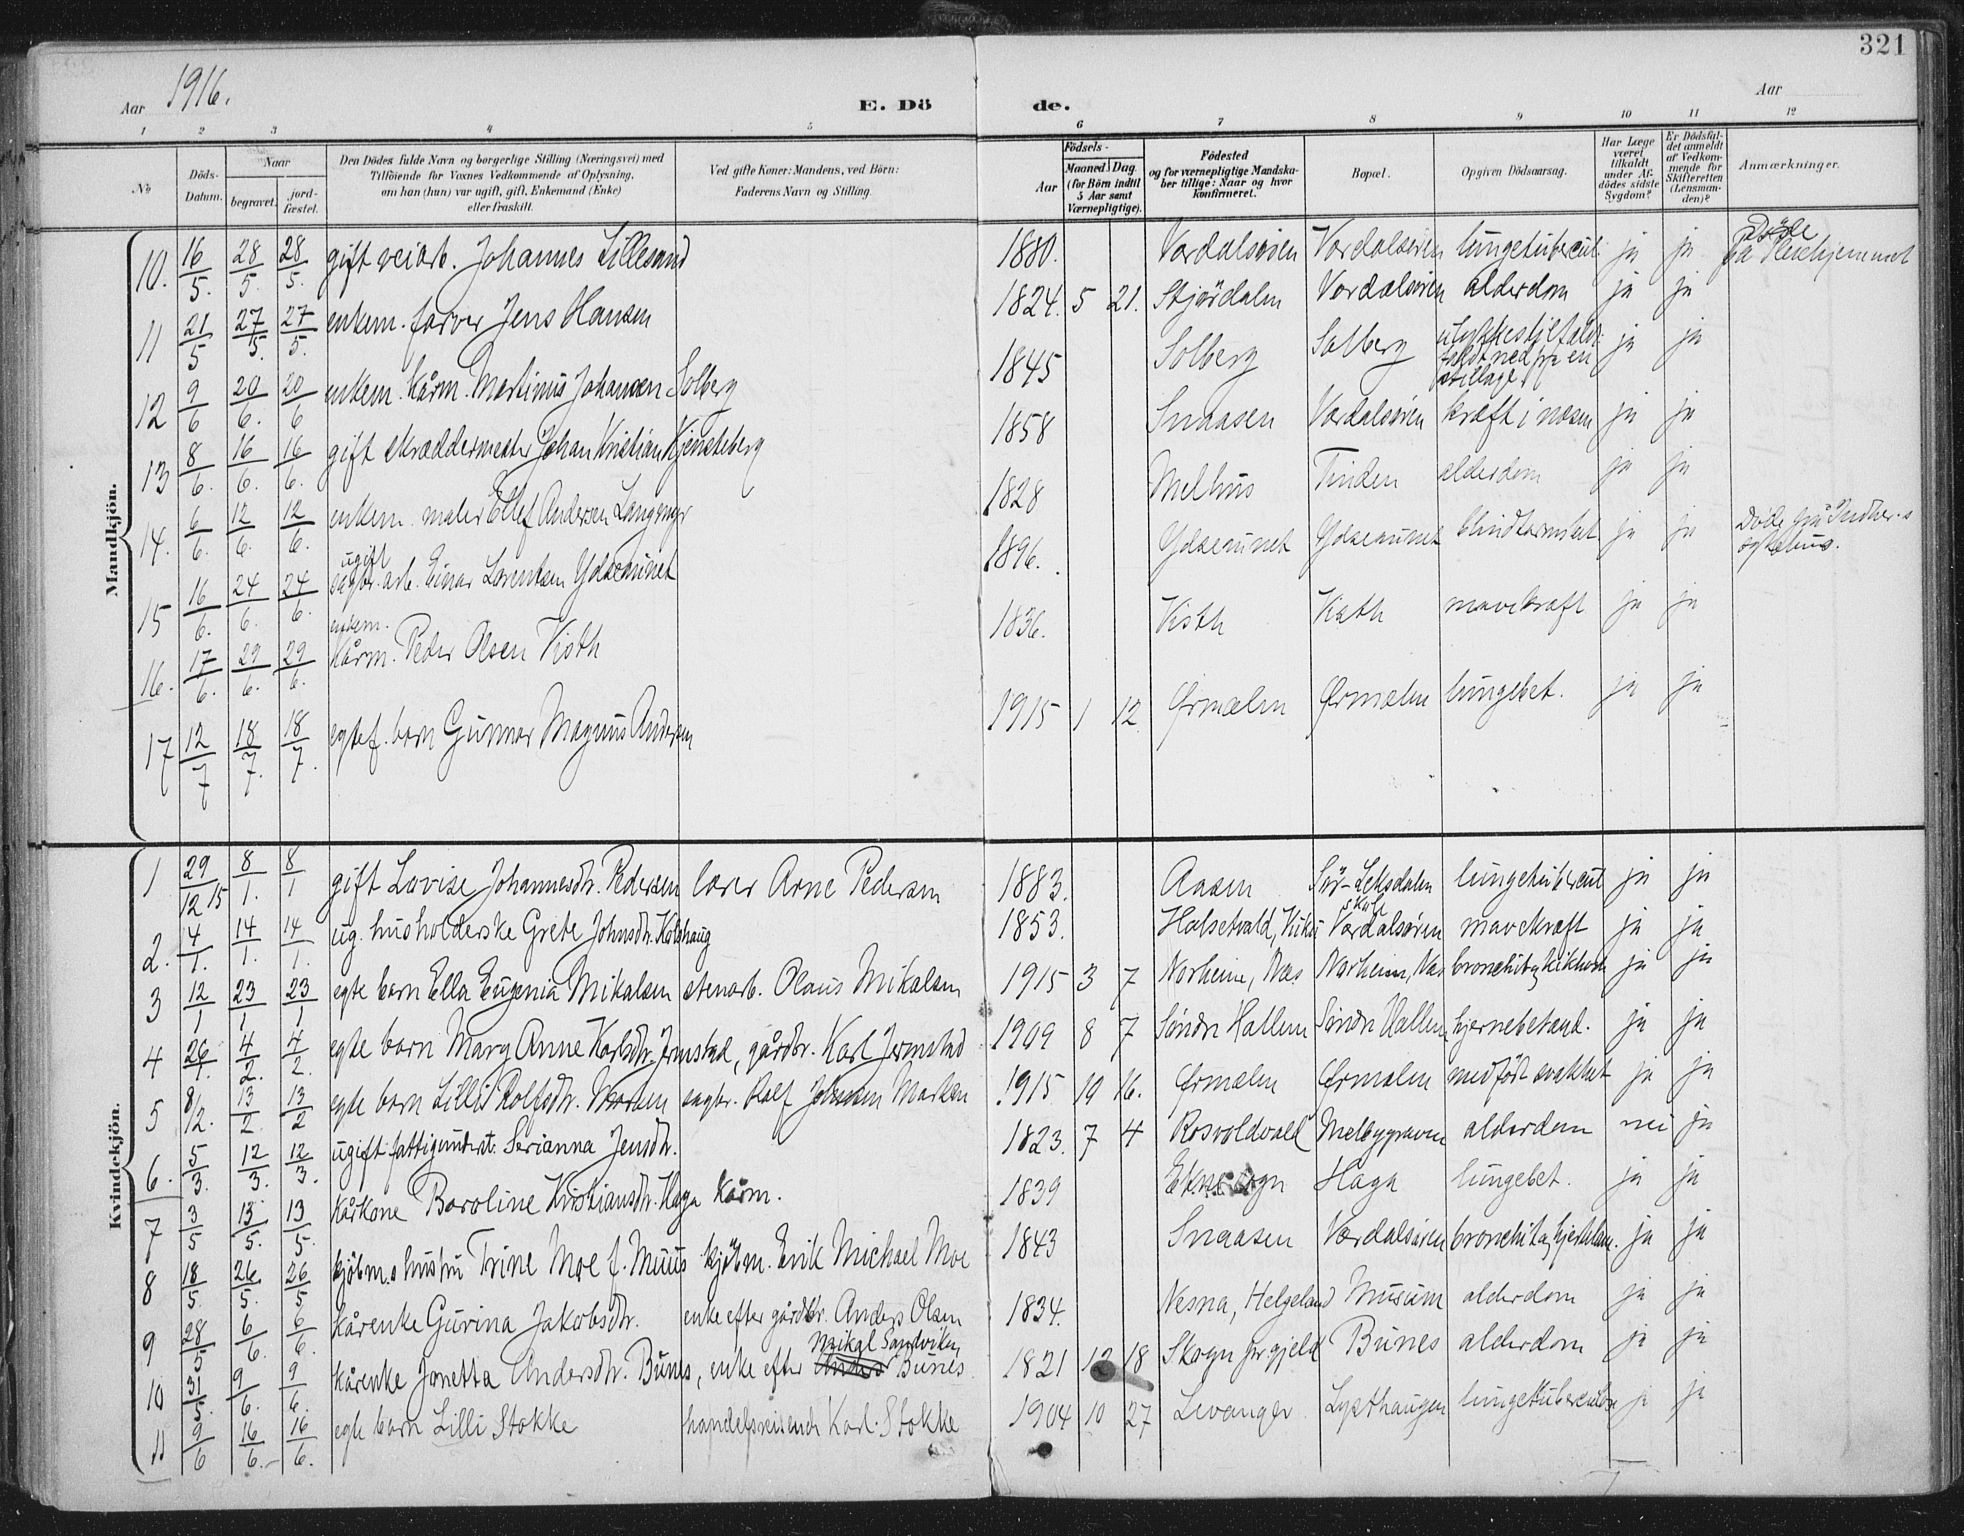 321
Aar 1916. E. Dö de. Aar
1 2 3 4 5 6 7 8 9 10 11 12
No
Döds-Datum.
Naar
begravet.
jord-fæstet.
Den Dödes fulde Navn og borgerlige Stilling (Næringsvei) med
Tilföiende for Voxnes Vedkommende af Oplysning,
om han (hun) var ugift, gift, Enkemand (Enke)
eller fraskilt.
Ved gifte Koner: Mandens, ved Börn:
Faderens Navn og Stilling
Födsels-
Aar
Maaned Dag
(for Börn indtil
5 Aar samt
Værnepligtige).
Födested
og for værnepligtige Mandska-
ber tillige: Naar og hvor
konfirmeret.
Bopæl.
Opgiven Dödsaarsag.
Har Læge
været
tilkaldt
under Af-
dödes sidste
Sygdom?
Er Dödsfal-
det anmeldt
af Vedkom-
mende for
Skifteretten
(Lensman-
den)?
Anmærkninger.
Mandkjön.
10. 16/5. 28/5. 28/5. gift veiarb. Johannes Lillesand 1880. Værdalsøren Værdalsøren lungetubercul. ja ja Døde på Pleiehjemmet
11 21/5 27/5. 27/5. enkem. farver Jens Hansen 1824. 5 21. Stjørdalen Værdalsøren alderdom ja ja
12 9/6 20/6. 20/6 enkem. kårm. Martinus Johansen Solberg 1845 Solberg Solberg ulykkestilfælde: faldt ned fra en stillage ja ja
13 8/6. 16/6. 16/6. gift skræddermester Johan Kristian Kjensteberg 1858 Snaasen Værdalsøren kræft i næsen ja ja
14. 6/6. 12/6. 12/6. enkem. maler Ellef Andersen 1828 Melhus Tinden alderdom ja ja
15 16/6. 24/6. 24/6. ugift sagbr. arb. Einar Lorentsen Ydseaunet 1896. Ydseaunet Ydseaunet blindtarmsbet. ja ja Døde på Indher.s sykehus.
16. 17/6. 29/6. 29/6. enkem. kårm. Peder Olsen Visth 1836. Visth Visth mavekræft ja ja
17 12/7 18/7. 18/7. egtef. barn Gunnar Magnus Andersen 1915 1 12 Ørmælen Ørmælen lungebet. ja ja
Kvindekjön.
1 29/12 15 8/1. 8/1 gift Lovise Johannesdtr. Pedersen lærer Arne Pedersen 1883. Aasen Sør-Leksdalen skole lungetubercul ja ja
2. 14/1. 14/1. 14/1. ug. husholderske Grete Johnsdtr. Kolshaug 1853. Halsetvald, Vuku Værdalsøren mavekræft ja ja
3 12/1 23/1 23/1 egte barn Ella Eugenia Mikalsen stenarb. Olaus Mikalsen 1915 3 7 Norheim, Næs Norheim, Næs bronchit og kikhoste ja ja
4 26/1. 4/2. 4/2. egte barn Mary Anne Karlsdtr. Jermstad, gårdbr. Karl Jermstad 1909 8 7 Søndre Hallem Søndre Hallem hjernebetænd. ja ja
5 8/2. 13/2 13/2 egte barn Lilli Rolfsdtr. Marken sagbr. Rolf Johnsen Marken 1915 10 16. Ørmælen Ørmælen medfødt svakhet ja ja
6. 5/3. 12/3. 12/3. ugift fattigunderst. Serianna Jensdtr. 1823. 7 4 Rosvoldvald Melbygraven alderdom nei ja
7 3/5 13/5. 13/5. kårkone Baroline Kristiansdtr. Haga kårm. 1839 Ekne sogn Haga lungebet. ja ja
8 18/5. 26/5. 26/5 kjøbm.s hustru Trine Moe f. Muus kjøbm. Erik Michael Moe 1843 Snaasen Værdalsøren bronchit og hjertelam. ja ja
9 28/5 6/6. 6/6. kårenke Gurina Jakobsdtr. enke efter gårdbr. Anders Olsen 1834. Nesna, Helgeland Musum alderdom ja ja
10 31/5. 9/6. 9/6. kårenke Jonetta Andersdtr. Bunes, enke efter Mikal Sandviken Bunes 1821 12 18 Skogn prgjeld Bunes alderdom ja ja
11 9/6 16/6. 16/6. egte barn Lilli Stokke handelsreisende Karl Stokke 1904 10 27 Levanger Lysthaugen lungetuberculose ja ja